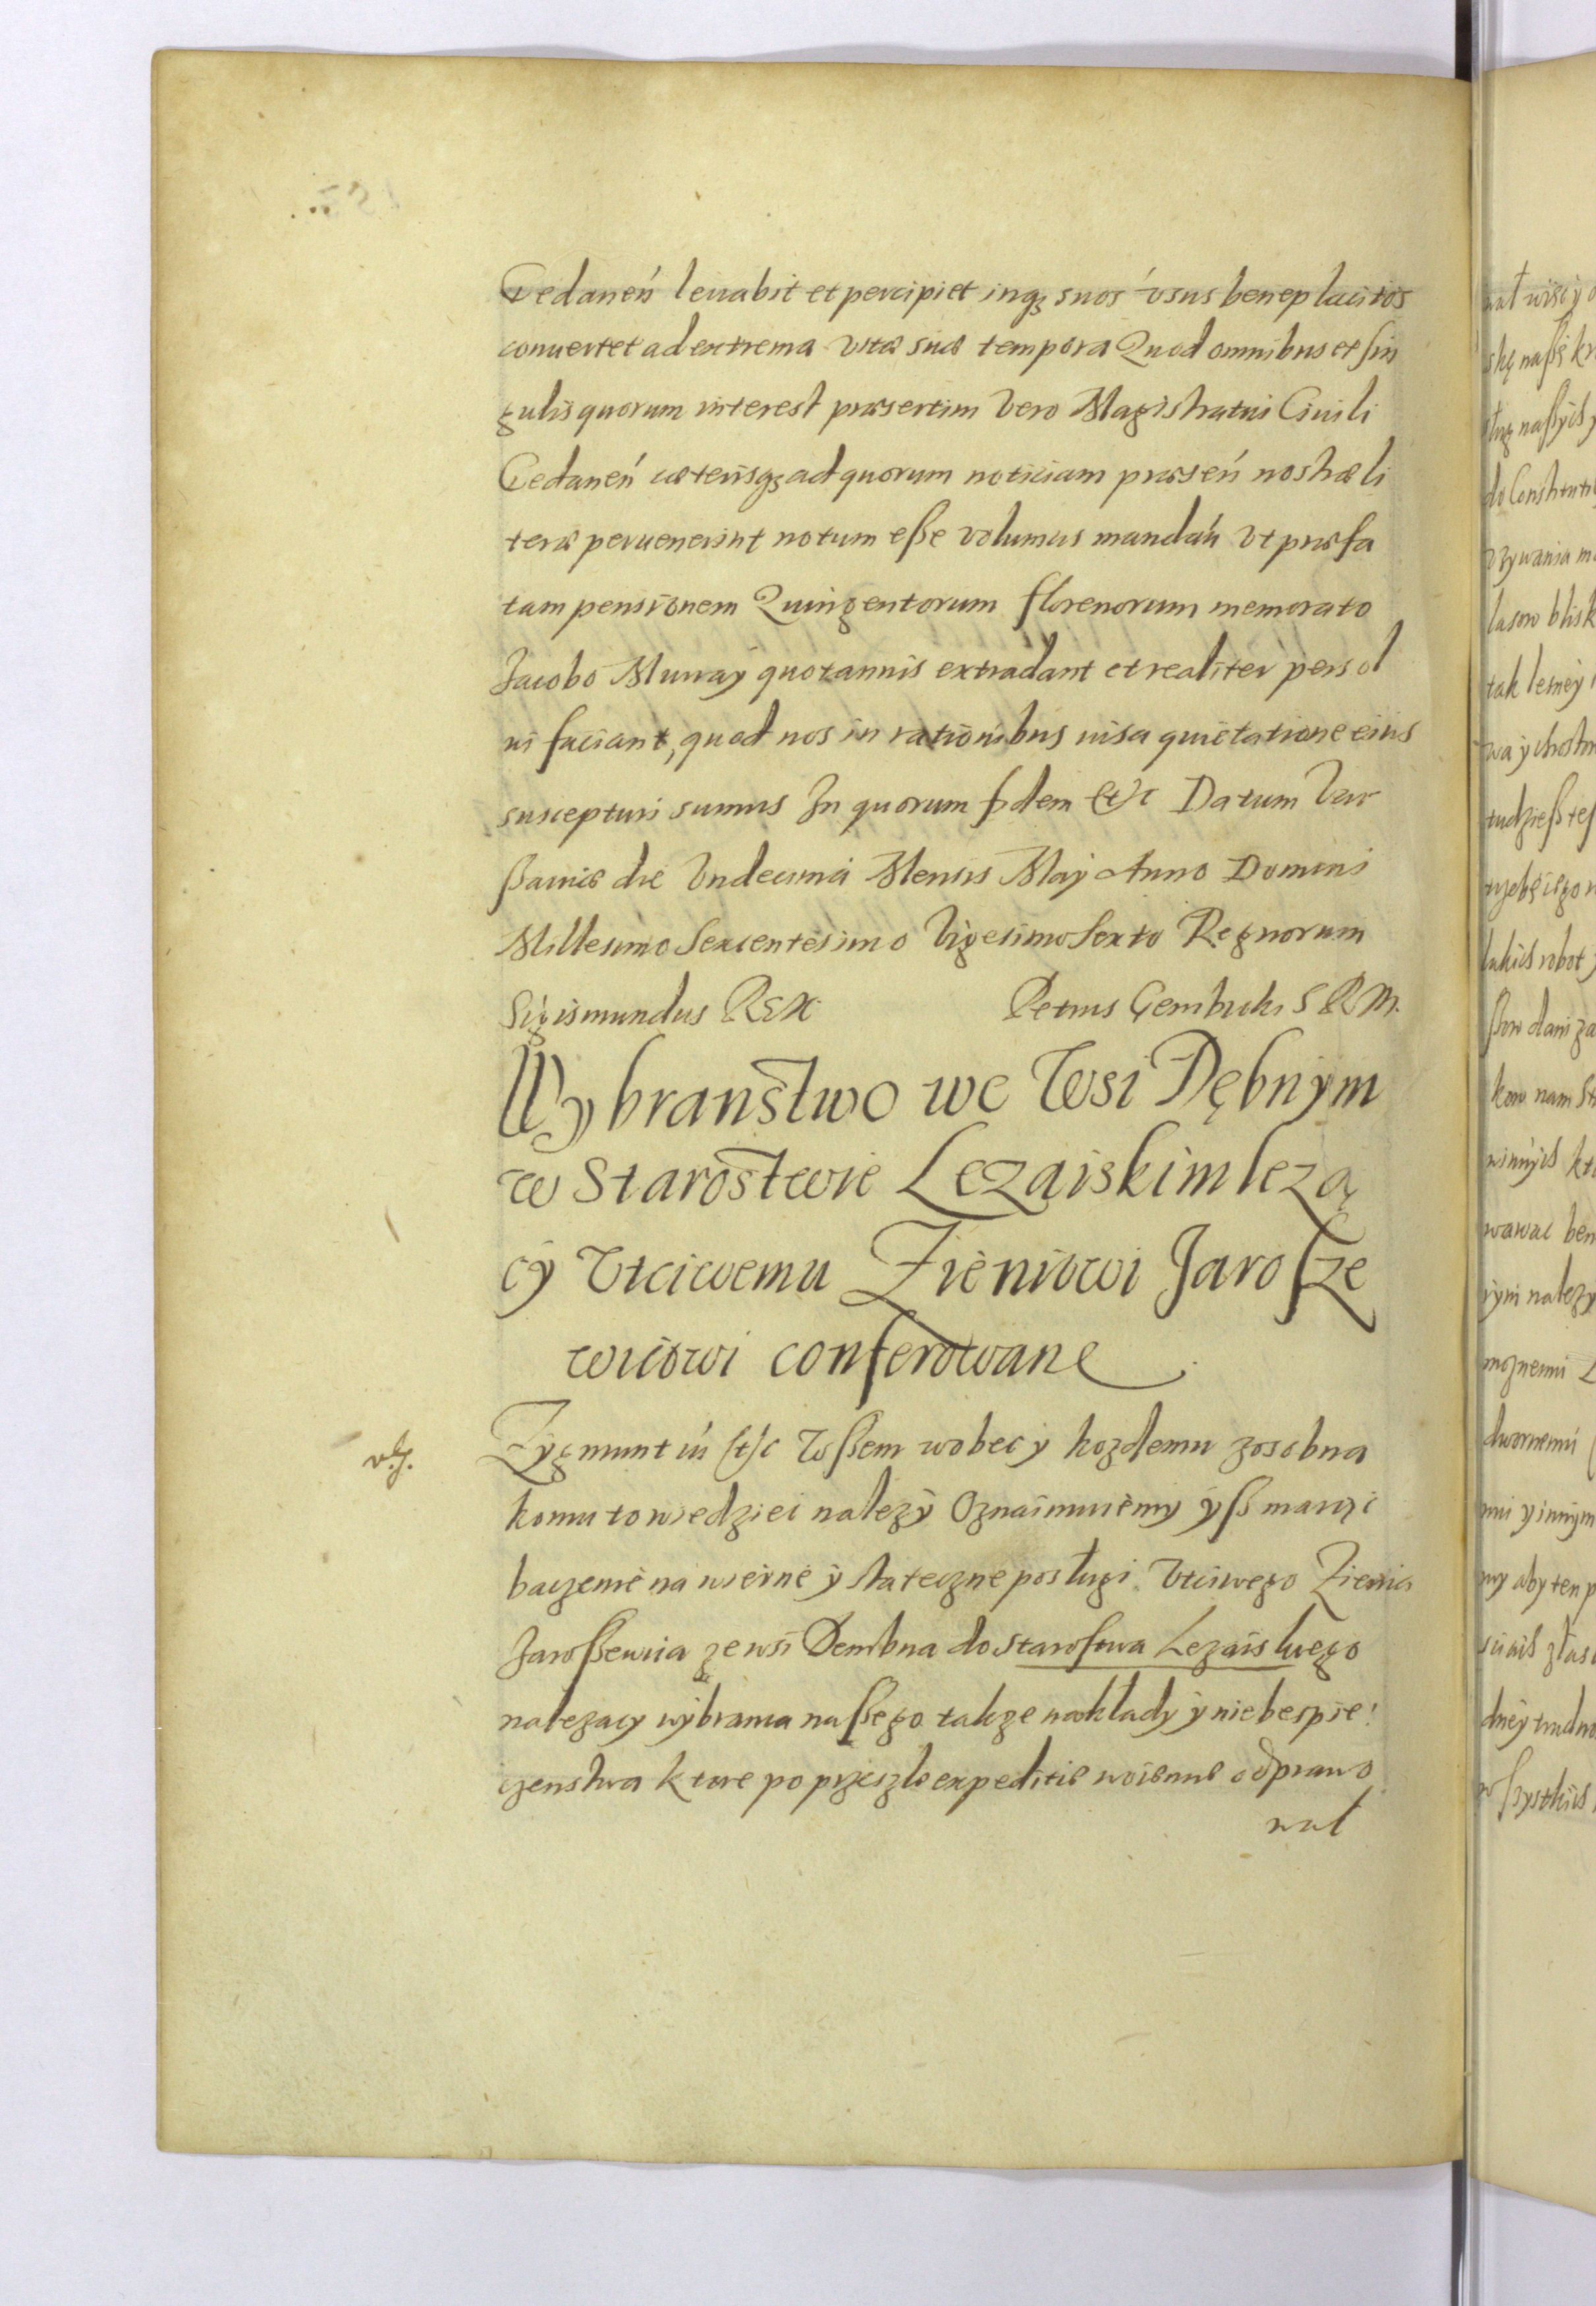 Gedaneń leuabit et percipiet inqꝫ suos vsus beneplacitos
conuertet ad extrema vitæ suæ tempora Quod omnibus et sin
gulis quorum interest præsertim Vero Magistratui Ciuili
Gedaneń cæterisqꝫ ad quorum noticiam præseń nostræ li
teræ peruenerint notum esse volumus mandań Vt præfa
tam pensionem Quingentorum florenorum memorato
Jacobo Murray quotannis extradant et realiter persol
ui faciant, quod nos in rationibus uisa quietatione eius
suscepturi sumus In quorum fidem etc Datum Var
ßauiæ die Vndecima Mensis Maÿ Anno Domini
Millesimo Sexcentesimo Vigesimo Sexto Regnorum
Sigismundus REX Petrus Gembicki S R M.
Wybraństwo we Wsi Dębnÿm
w Starostwie Lezaiskim lezą
cÿ Vtciwemu Zieniowi Jarosze
wicowi conferowane
Zÿgmunt iii etc Wßem wobec y kozdemu zosobna
komu to wiedziec nalezÿ Oznaimuiemy ÿß maiąc
baczenie na wierne ÿ stateczne posługi Vtciwego Zienia
Jaroßewica ze wsi Dembna do starostwa Lezaiskiego
nalezacy wÿbranca naßego takze nakłady ÿ niebespie
czenstwa ktore po przeszłe expeditie woienne odprawo
wał
wał wisi y o
skę naßę kr
sług naßÿch y
do Constituti
vzywania m
lasow blisk
tak lesney
wa ÿ chrostow
tudzieß tes
ßow dani za
kow nam
winnÿch kt
wawac ben
rym nalezy
moznemu
dwornemu
mi ÿ innym
my aby ten p
dneÿ trudno
wßystkich